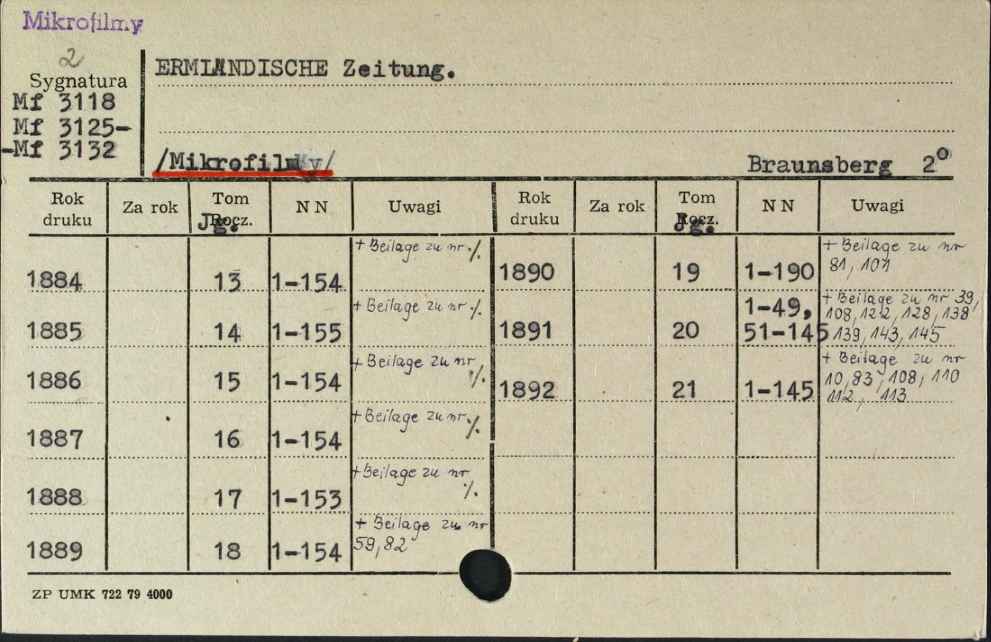 Mikrofilmy
2
Sygnatura
Mf 3118
Mf 3125-
-Mf 3132
ERMLÄNDISCHE Zeitung.
/Mikrofilmy/
Braunsberg 2°
Rok druku Za rok Tom Jg. Rocz. NN Uwagi Rok druku Za rok Tom Jg. Rocz. NN Uwagi
1884 13 1-154 + Beilage zu nr ·/.
1885 14 1-155 + Beilage zu nr ·/.
1886 15 1-154 + Beilage zu nr ·/.
1887 16 1-154 + Beilage zu nr ·/.
1888 17 1-153 + Beilage zu nr ·/.
1889 18 1-154 + Beilage zu nr 59, 82
1890 19 1-190 + Beilage zu nr 81, 101
1891 20 1-49, 51-145 + Beilage zu nr 39, 108, 122, 128, 138 139, 143, 145
1892 21 1-145 + Beilage zu nr 10, 83, 108, 110 112, 113
ZP UMK 722 79 4000